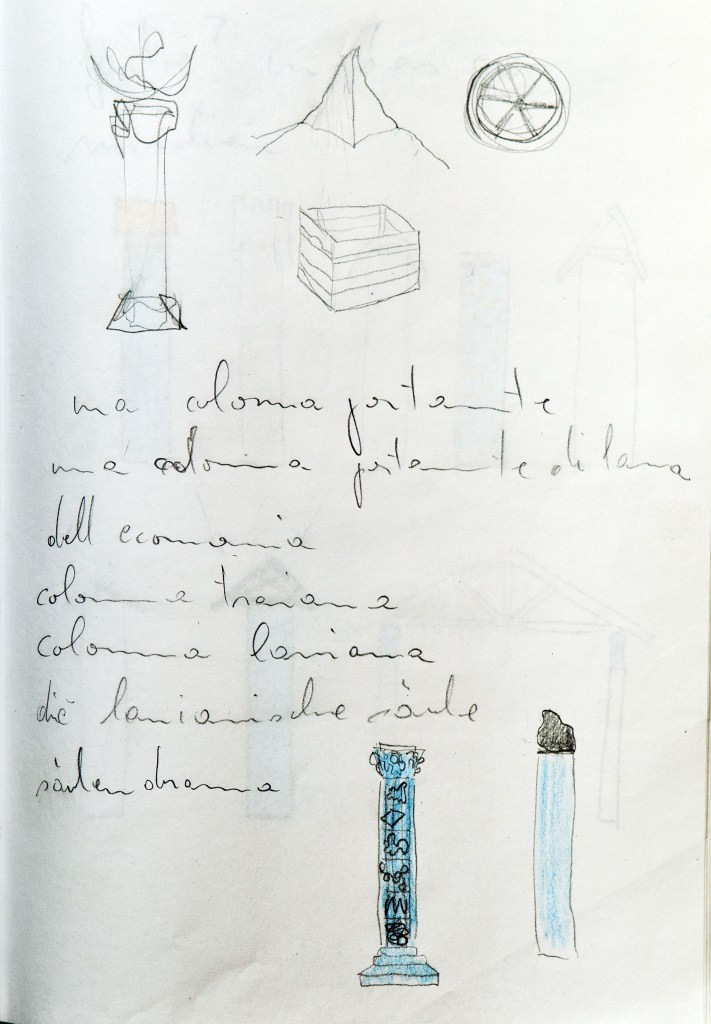 una colonna portante
una colonna portante di lana
dell economia
colonna traiana
colonna laniana
die lanianische säule
säulen drama